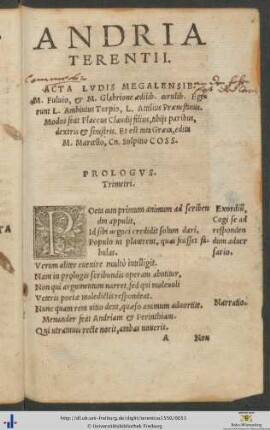 ANDRIA
TERENTII.
ACTA LVDIS MEGALENSIB.
M. Fuluio, & M. Glabrione ædilib. curulib. Ege
runt L. Ambiuius Turpio, L. Attilius Prænestinus.
Modos fecit Flaccus Claudij filius, tibijs paribus,
dextris & sinistris. Et est tota Græca, edita
M. Marcello, Cn. Sulpitio COSS.
PROLOGVS.
Trimetri.
POeta cum primum animum ad scriben
dum appulit,
Id sibi negoci credidit solum dari,
Populo ut placerent, quas fecisset fa-
bulas.
Verum aliter euenire multò intelligit.
Nam in prologis scribundis operam abutitur,
Non qui argumentum narret, sed qui maleuoli
Veteris poëtæ maledictis respondeat.
Nunc quam rem uitio dent, quæso animum aduortite.
Menander fecit Andriam & Perinthiam.
Qui utramuis recte norit, ambas nouerit.
A Non
Exordiū,
Cogi se ad
responden
dum aduer
sario.
Narratio.
http://dl.ub.uni-freiburg.de/diglit/terentius1550/0053
© Universitätsbibliothek Freiburg